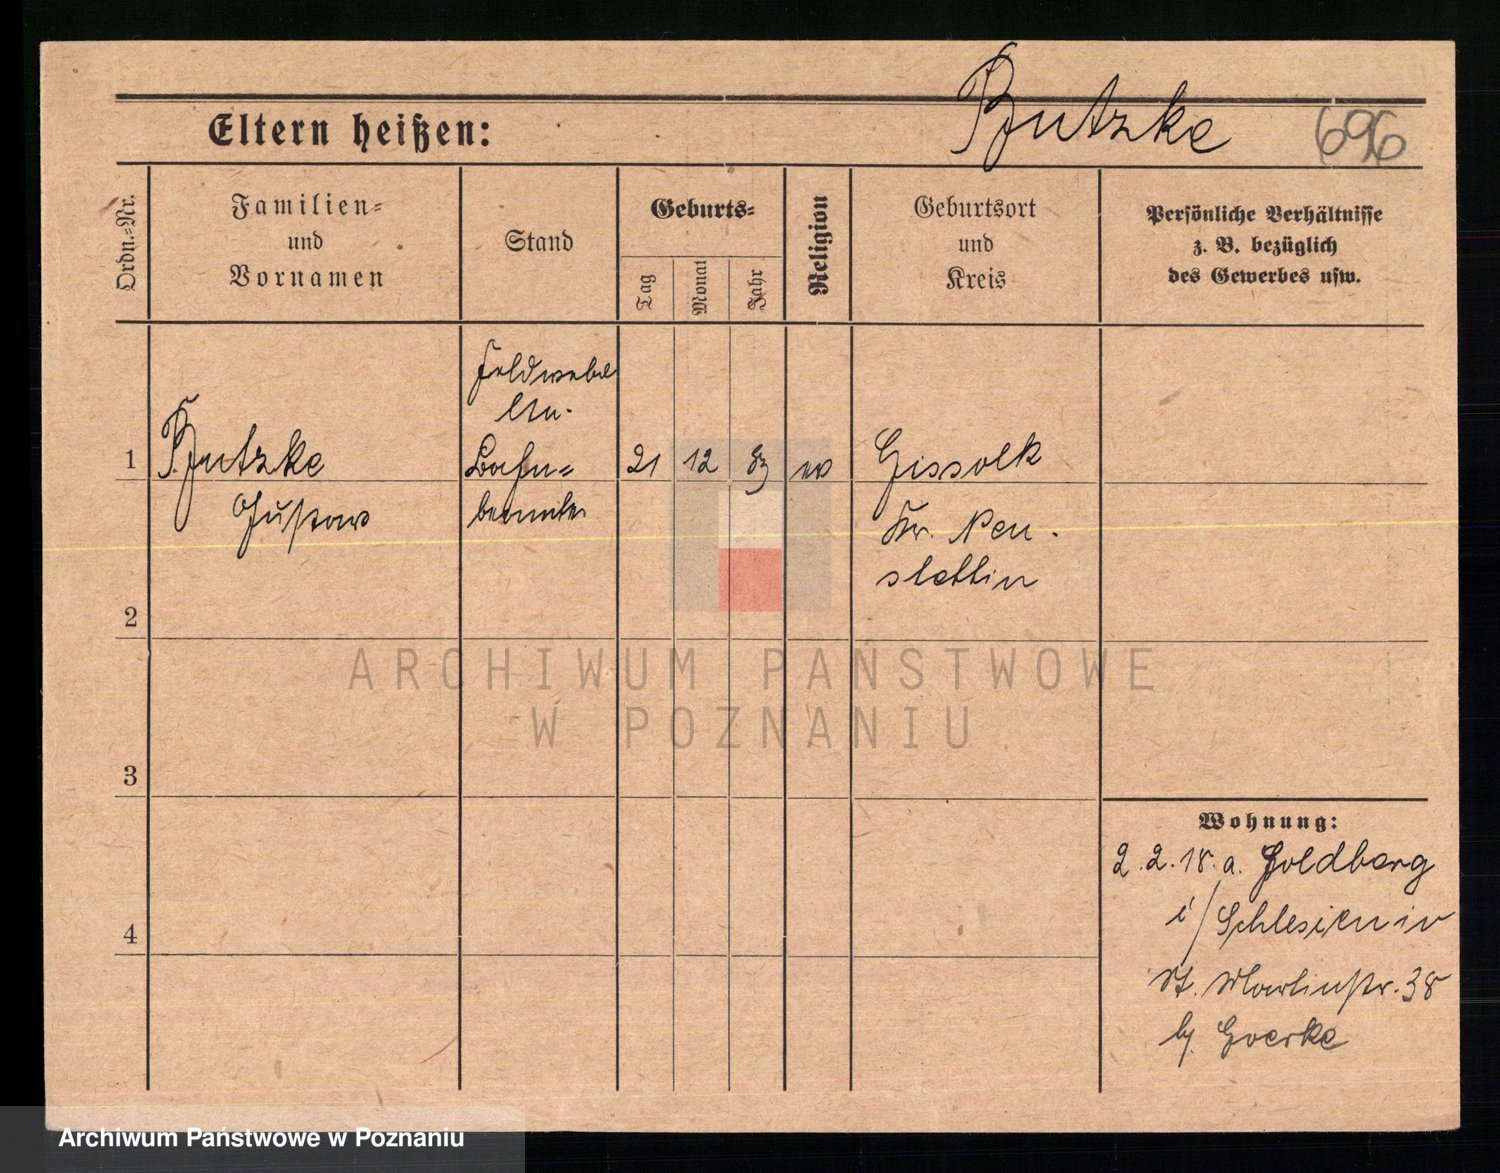 Butzke 696
Eltern heißen:
Ordn.-Nr.
Familien-
und
Vornamen
Stand
Geburts-
Tag
Monat
Jahr
Religion
Geburtsort
und
Kreis
Persönliche Verhältnisse
z. B. bezüglich
des Gewerbes usw.
Feldwebel
Ltn.
1 Butzke Bahn- 21 12 83 ev Gissolk
Gustav beamter Kr. Neu-
stettin
2
3
4
Wohnung:
2.2.18. a. Goldberg
i/Schlesien in
St. Martinstr. 38
b/ Goerke
ARCHIWUM PAŃSTWOWE
W POZNANIU
Archiwum Państwowe w Poznaniu